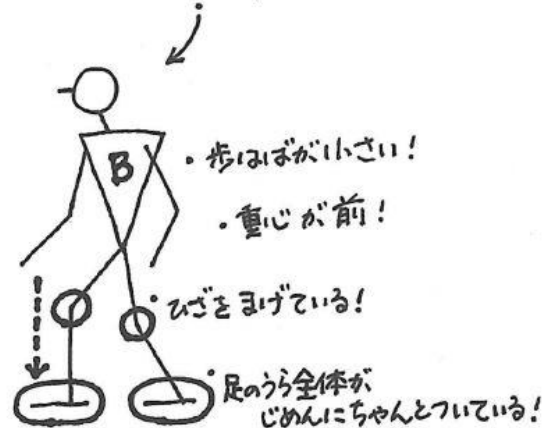 B
・歩はばが小さい!
・重心が前!
・ひざをまげている!
・足のうら全体が
じめんにちゃんとついている!